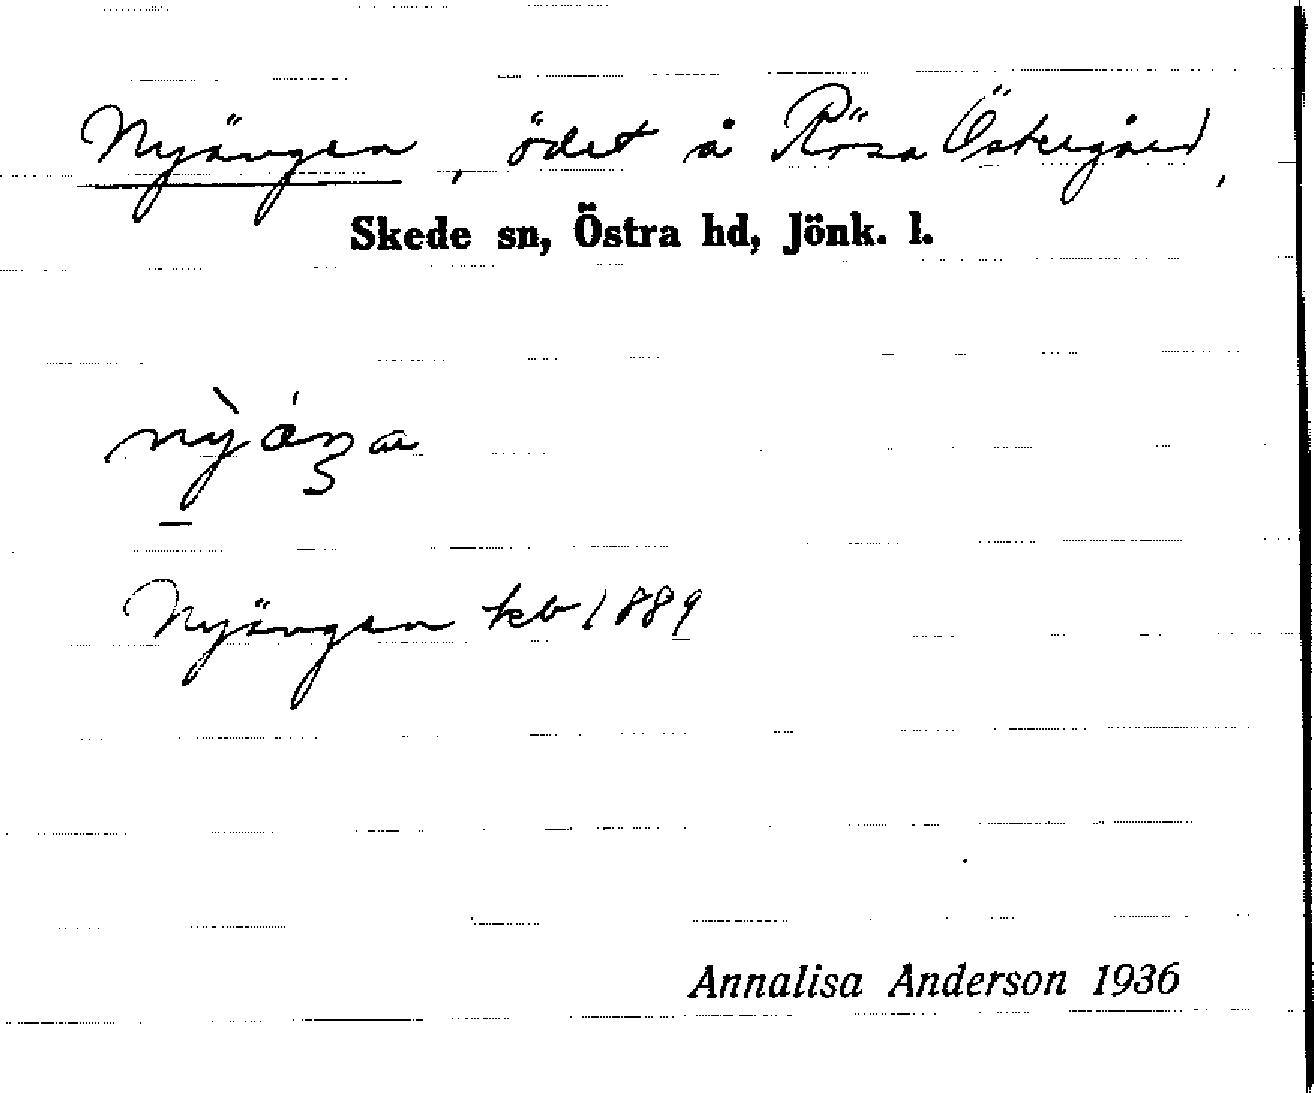 Nyängen, ödet å Rösa Östergård,
Skede sn, Östra hd, Jönk. l.
nỳáŋa
Nyängen kb 1889
Annalisa Anderson 1936